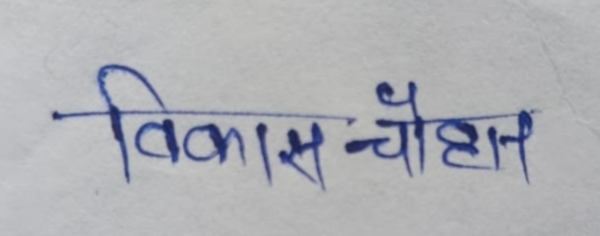 विकास चौहान